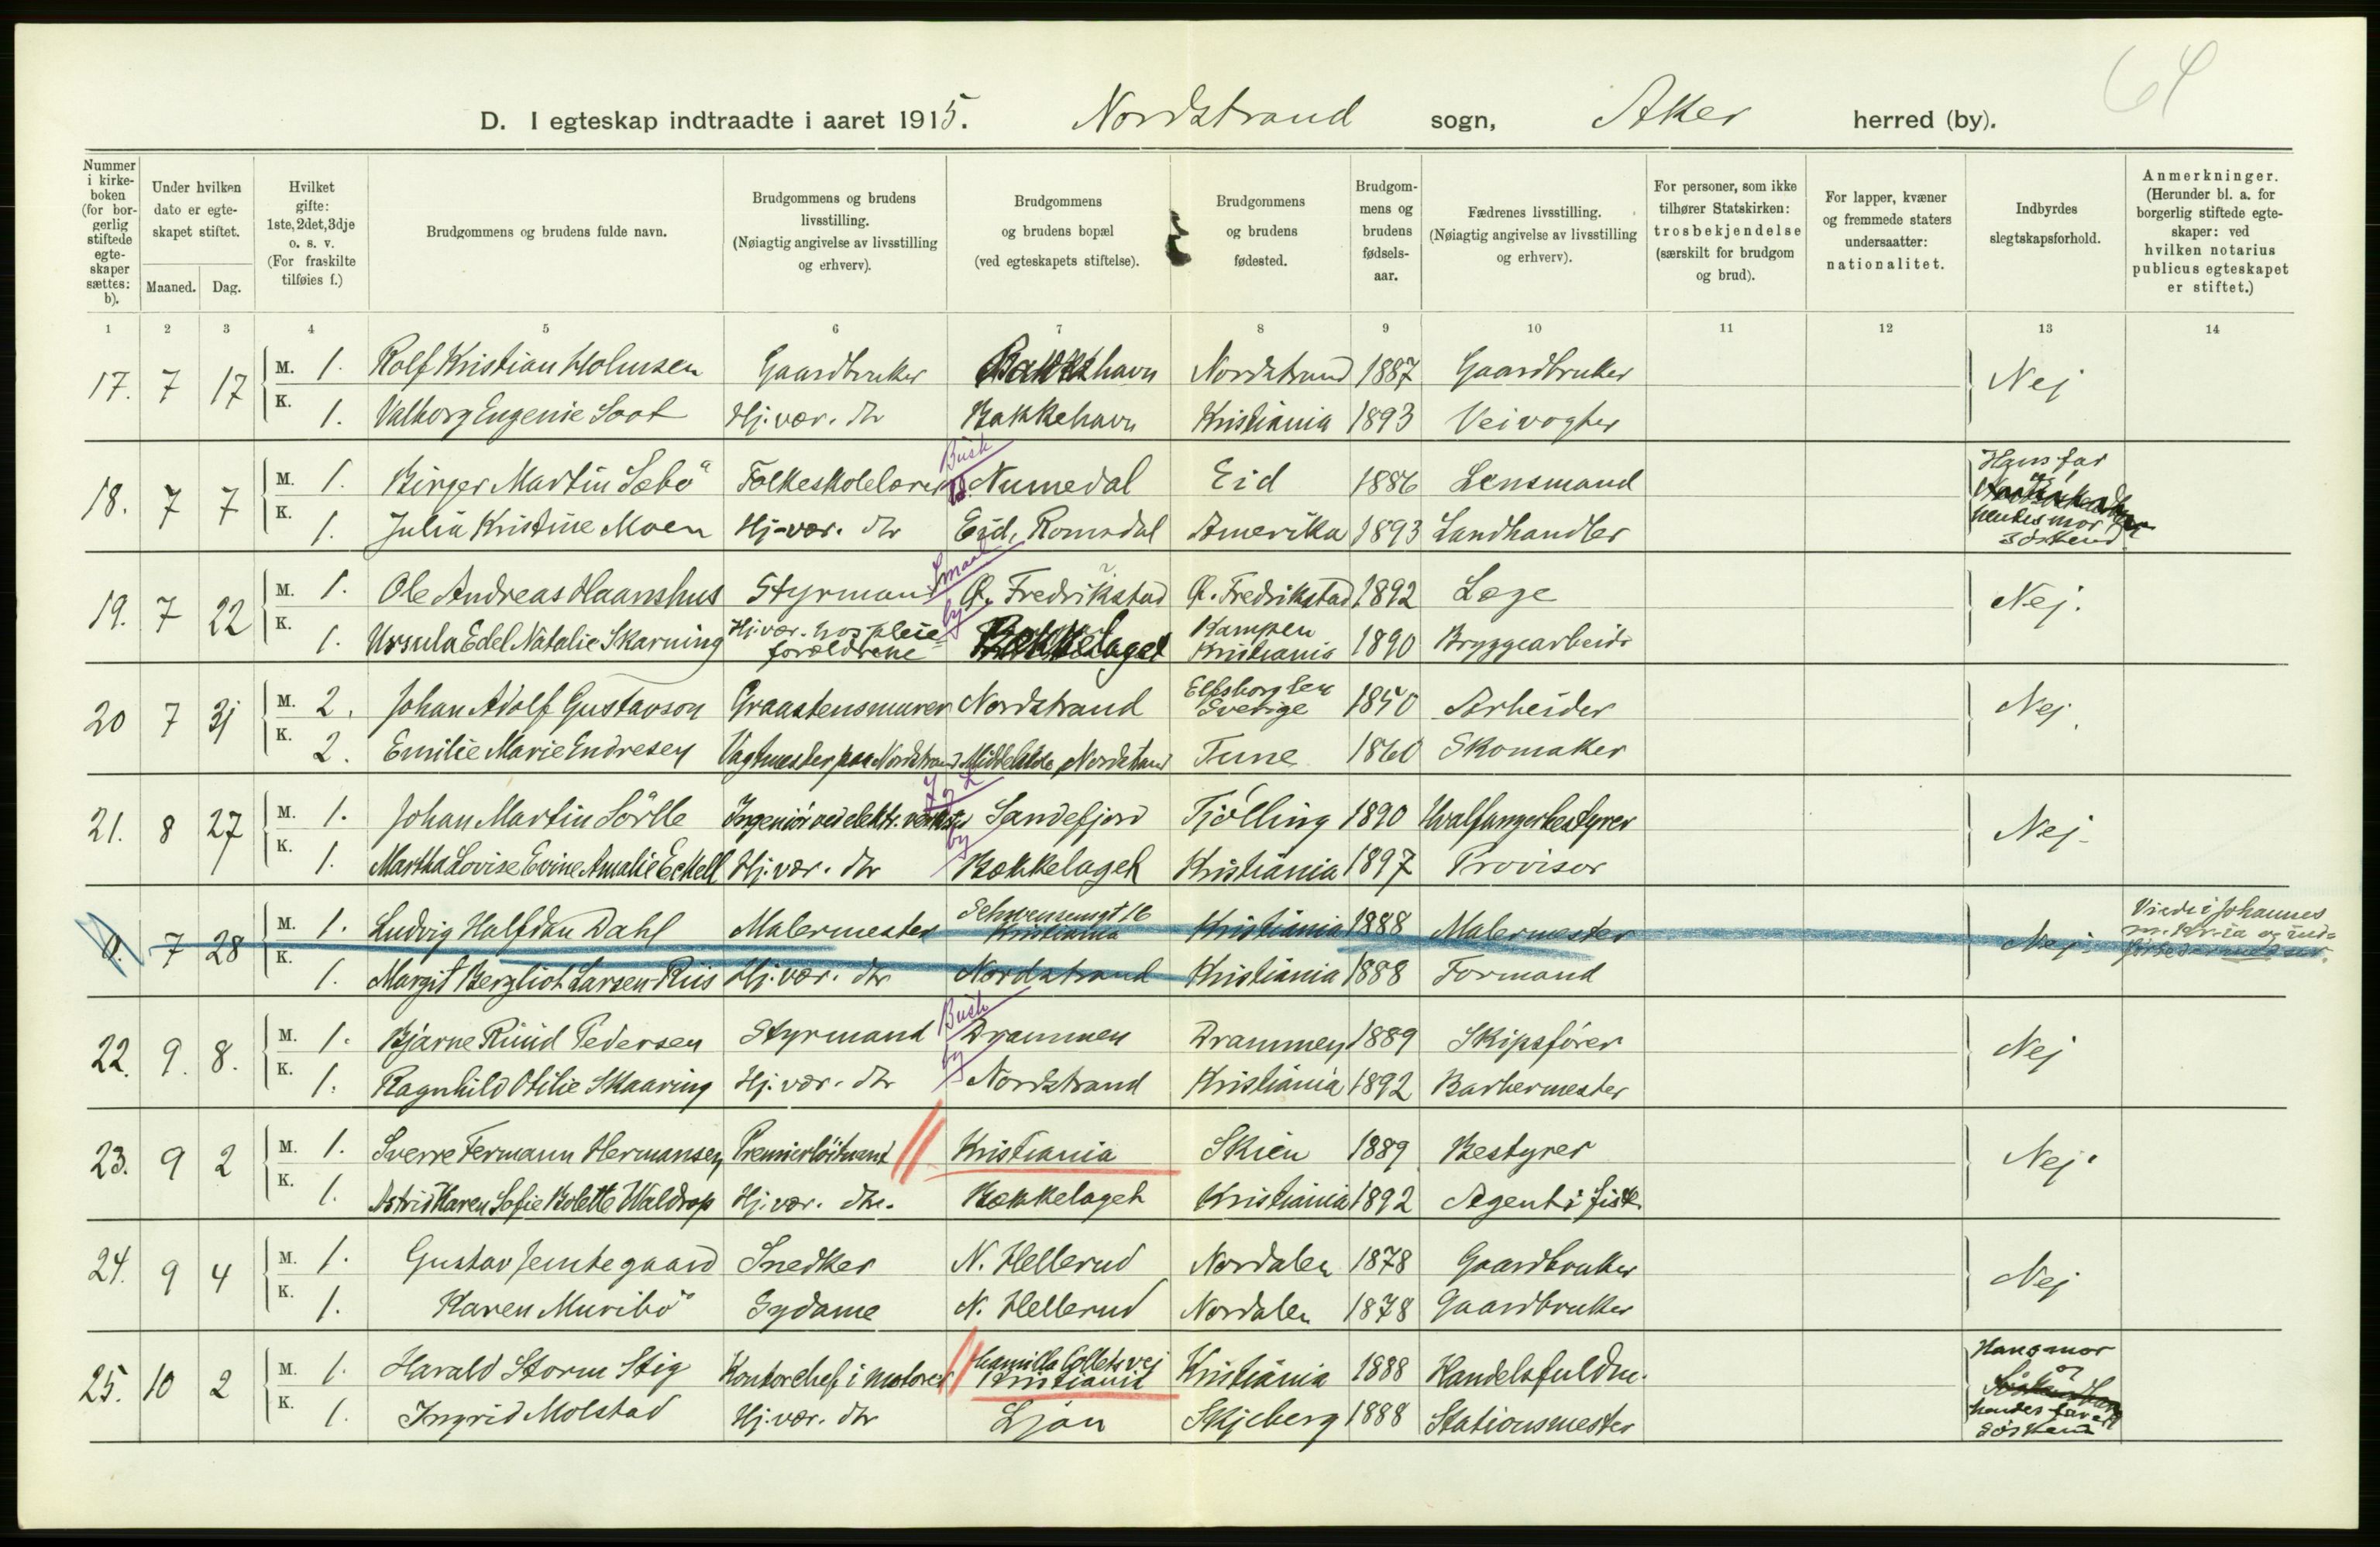 64
D. I egteskap indtraadte i aaret 1915. Nordstrand sogn, Aker herred (by).
Nummer i kirke-boken (for bor-gerlig stiftede egte-skaper sættes: b).
Under hvilken dato er egte-skapet stiftet.
Maaned. Dag.
Hvilket gifte: 1ste, 2det, 3dje o. s. v. (For fraskilte tilføies f.)
Brudgommens og brudens fulde navn.
Brudgommens og brudens livsstilling. (Nøiagtig angivelse av livsstilling og erhverv).
Brudgommens og brudens bopæl (ved egteskapets stiftelse).
Brudgommens og brudens fødested.
Brudgom-mens og brudens fødsels-aar.
Fædrenes livsstilling. (Nøiagtig angivelse av livsstilling og erhverv).
For personer, som ikke tilhører Statskirken: trosbekjendelse (særskilt for brudgom og brud).
For lapper, kvæner og fremmede staters undersaatter: nationalitet.
Indbyrdes slegtskapsforhold.
Anmerkninger. (Herunder bl. a. for borgerlig stiftede egte-skaper: ved hvilken notarius publicus egteskapet er stiftet.)
1 2 3 4 5 6 7 8 9 10 11 12 13 14
17. 7 17 M. 1. Rolf Kristian Holmsen Gaardbruker Nordstrand 1887 Gaardbruker Nej
K. 1. Valborg Eugenie Soot Hj. vær. dtr Bakkehavn Kristiania 1893 Veivogter
Busk
18. 7 7 M. 1. Birger Martin Sæbö Folkeskolelærer Numedal Eid 1886 Lensmand Hans far og
K. 1. Julia Kristine Moen Hj-vær. dtr Eid, Romsdal Amerika 1893 Landhandler hendes mor söskend
Smaal
19. 7 22 M. 1. Ole Andreas Haanshus Styrmand Ø. Fredrikstad Ø. Fredrikstad 1892 Læge Nej.
by
K. 1. Ursula Edel Natalie Skarning Hj. vær. hos pleie-forældrene Bækkelaget Kampen Kristiania 1890 Bryggearbeider
20 7 31 M. 2. Johan Adolf Gustavson Graastensmurer Nordstrand Elfsborg len Sverige 1850 Arbeider Nej.
K. 2. Emilie Marie Endresen Vagtmester paa Nordstrand Middelskole, Nordstrand Tune 1860 Skomaker
J. g L
21. 8 27 M. 1. Johan Martin Sörlle Ingeniör ved elektr. verksted Sandefjord Tjölling 1890 Hvalfangerbestyrer Nej.
by
K. 1. Martha Lovise Evine Amalie Eckell Hj. vær. dtr Bækkelaget Kristiania 1897 Provisor
7 28 M. 1. Ludvig Halfdan Dahl Malermester Schwensensgt 16 Kristiania Kristiania 1888 Malermester Nej. Viede i Johannes m. Kr.ia og
K. 1. Margit Bergliot Larsen-Riis Hj. vær. dtr Nordstrand Kristiania 1888 Formand
Busk
22. 9. 8. M. 1. Bjarne Ruud Pedersen Styrmand Drammen Drammen 1889 Skipsförer Nej
by
K. 1. Ragnhild Otilie Skaaring Hj. vær. dtr Nordstrand Kristiania 1892 Barbermester
23. 9 2 M. 1. Sverre Fermann Hermansen Premierlöitnant Kristiania Skien 1889 Bestyrer Nej.
K. 1. Astrid Karen Sofie Bolette Waldrop Hj. vær. dtr. Bækkelaget Kristiania 1892 Agent i fisk
24. 9 4 M. 1. Gustav Jemtegaard Snedker N. Hellerud Nordalen 1878 Gaardbruker Nej
K. 1. Karen Muribö Sydame N. Hellerud Nordalen 1878 Gaardbruker
25. 10 2 M. 1. Harald Storm Stig Kontorchef i motorer Camilla Collets vej Kristiania Kristiania 1888 Handelsfuldm. Hans mor og
K. 1. Ingrid Molstad Hj. vær. dtr Ljan Skjeberg 1888 Stationsmester hendes far söskend